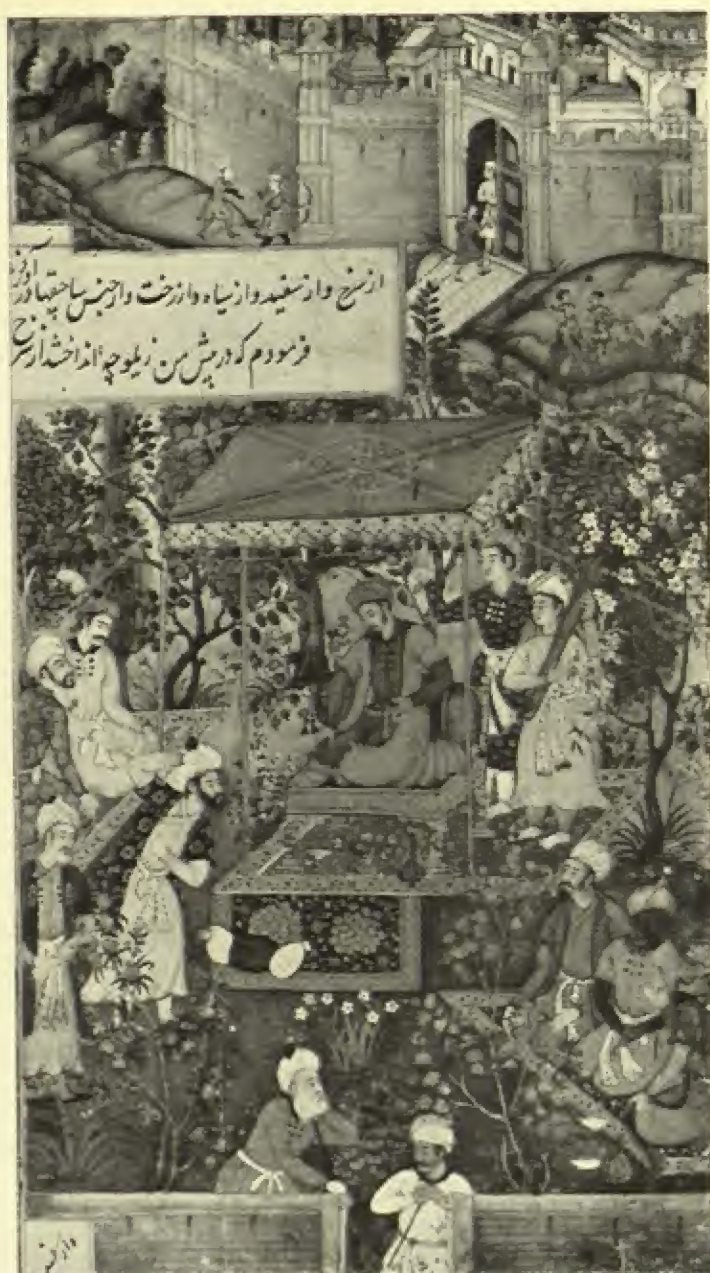 از سرخ و از سفید و از سیاه و از رخت و از جنس ساچقها
فرمودم که در پیش من زیلوچه انداختند از سرخ